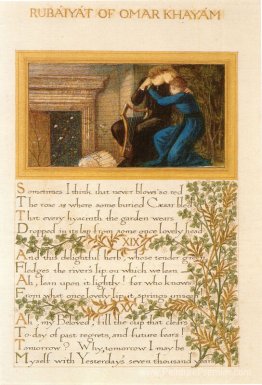 RUBÁIYÁT OF OMAR KHAYÁM
Sometimes I think that never blows so red
The rose as where some buried Cæsar bled
That every hyacinth the garden wears
Dropped in its lap from some once lovely head
XIX
And this delightful herb, whose tender green
Fledges the river's lip on which we lean
Ah, lean upon it lightly! for who knows
From what once lovely lip it springs unseen
Ah, my Beloved, fill the cup that clears
To-day of past regrets, and future fears
Tomorrow? Why, tomorrow I may be
Myself with Yesterday's seven thousand years